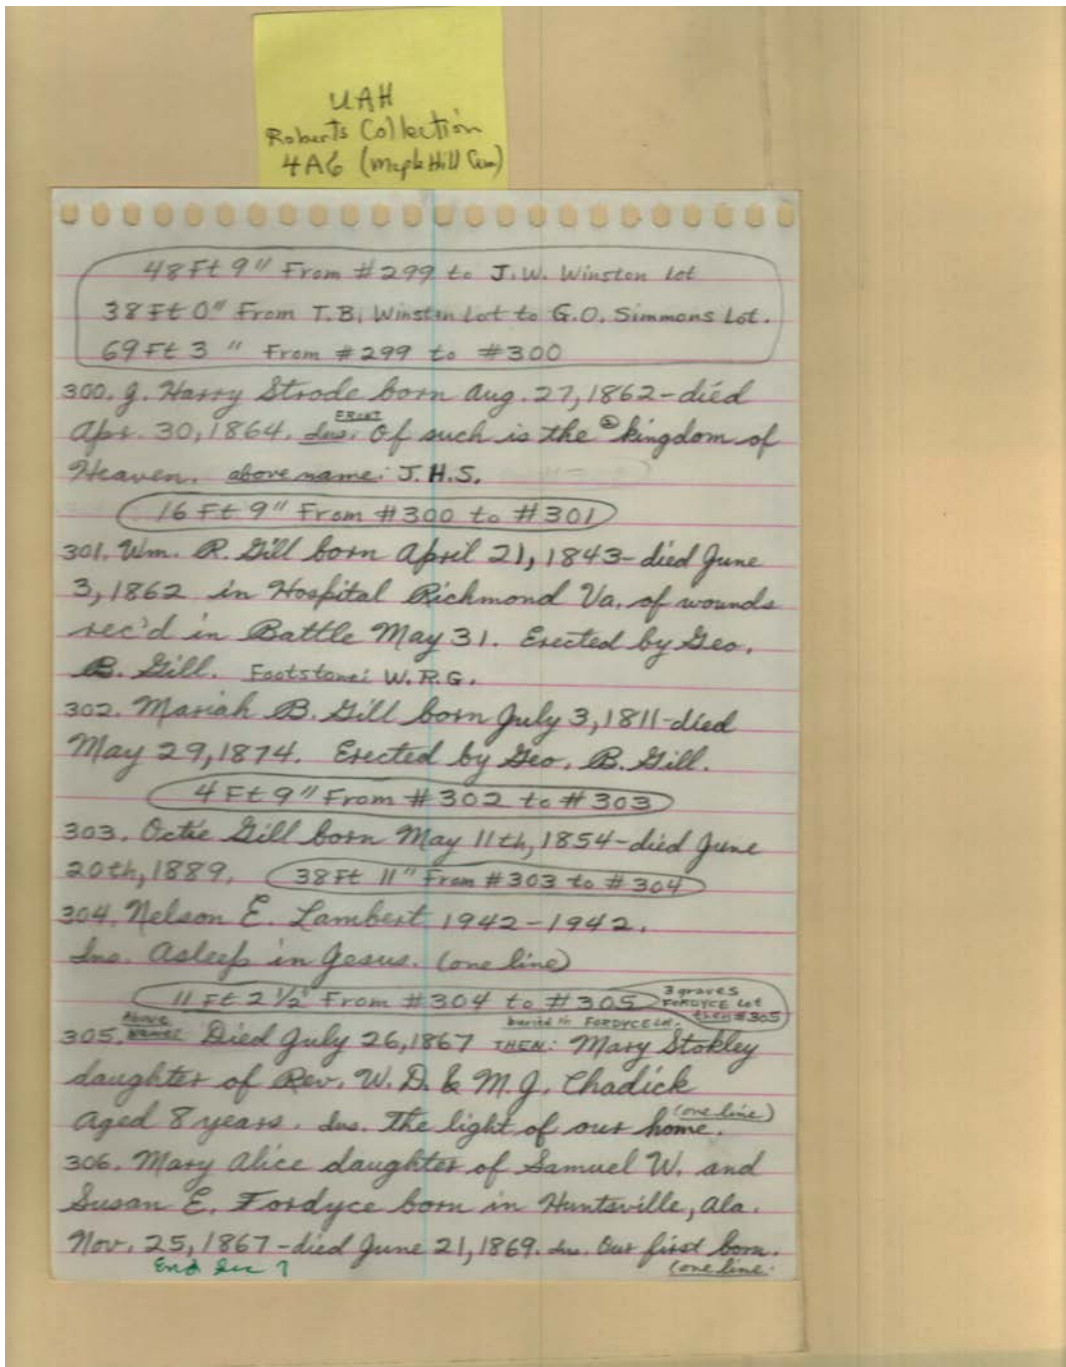 UAH
Roberts Collection
4A6 (Maple Hill Cem)
48 Ft 9" From #299 to J.W. Winston Lot
38 Ft 0" From T.B. Winston Lot to G.O. Simmons Lot.
69 Ft 3" From #299 to #300
300. J. Harry Strode born Aug. 27, 1862 - died
FRONT
Apr. 30, 1864. Ins. Of such is the kingdom of
Heaven. above name: J.H.S.
16 Ft 9" From #300 to #301
301. Wm. R. Gill born April 21, 1843 - died June
3, 1862 in Hospital Richmond Va. of wounds
rec'd in Battle May 31. Erected by Geo.
B. Gill. Footstone: W.R.G.
302. Mariah B. Gill born July 3, 1811 - died
May 29, 1874. Erected by Geo. B. Gill.
4 Ft 9" From #302 to #303
303. Octie Gill born May 11th, 1854 - died June
20th, 1889. 38 Ft 11" From #303 to #304
304. Nelson E. Lambert 1942 - 1942.
Ins. Asleep in Jesus. (one line)
11 Ft 2 1/2" From #304 to #305 3 graves
FORDYCE Lot
then #305
Above name: buried in FORDYCE Lot.
305. Died July 26, 1867 THEN: Mary Stokley
daughter of Rev. W.D. & M.J. Chadick
aged 8 years. Ins. The light of our home. (one line)
306. Mary Alice daughter of Samuel W. and
Susan E. Fordyce born in Huntsville, Ala.
Nov. 25, 1867 - died June 21, 1869. Ins. Our first born.
End Sec 7 (one line.